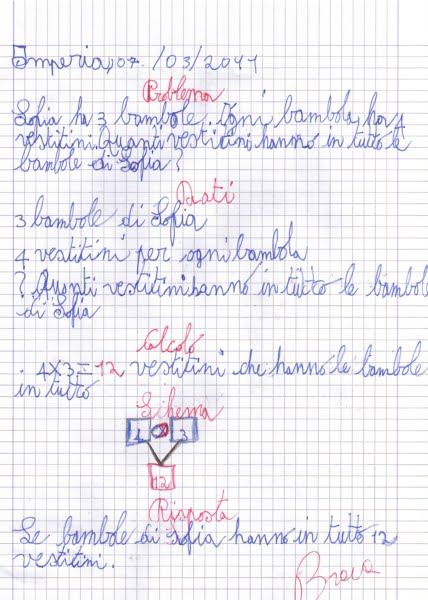 Imperia, 07/03/2011
Problema
Sofia ha 3 bambole. Ogni bambola ha 4
vestitini. Quanti vestitini hanno in tutto le
bambole di Sofia?
Dati
3 bambole di Sofia
4 vestitini per ogni bambola
? Quanti vestitini hanno in tutto le bambole
di Sofia
Calcolo
. 4X3=12 vestitini che hanno le bambole
in tutto
Sihema
4 3
12
Risposta
Le bambole di Sofia hanno in tutto 12
vestitini.
Brava